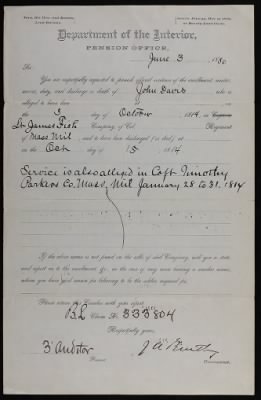 Department of the Interior,
PENSION OFFICE,
June 3, 1880
Sir:
You are respectfully requested to furnish official evidence of the enrollment, muster,
service, duty, and discharge or death of John Davis who is
alleged to have been
day of October 1814, in Captain
Lt. James Fish Company, of Col. Regiment
of Mass Mil, and to have been discharged (or died) at
on the Oct day of 15, 1814
Service is also alleged in Capt Timothy
Parkers Co. Mass. Mil January 28 to 31. 1814
If the above name is not found on the rolls of said Company, will you so state,
and report as to the enrollment, &c., in the case of any man bearing a similar name,
whom you have good reason for believing to be the soldier inquired for.
Please return this Circular with your report.
B.L. Claim No. 333 804
Respectfully yours,